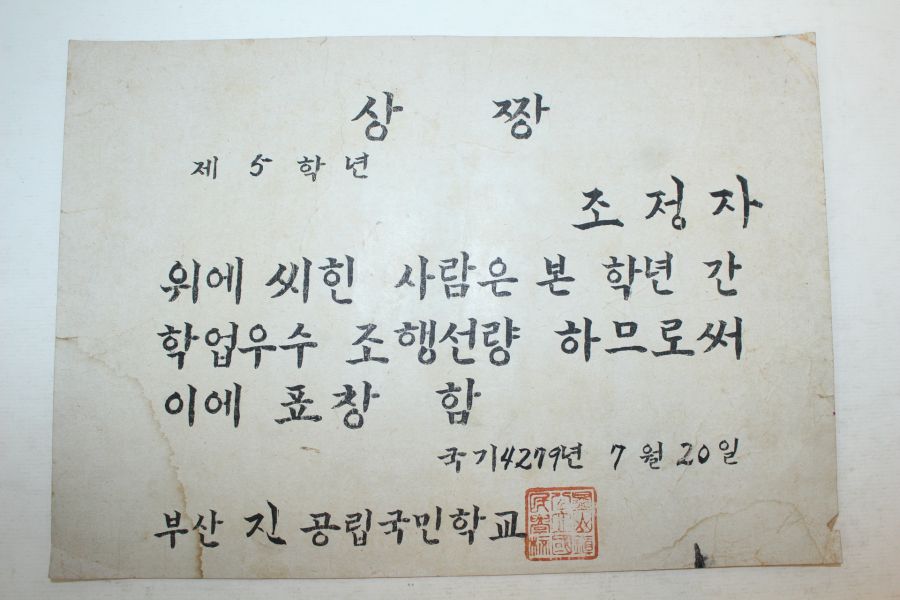 상 짱
제 5 학년
조정자
위에 씨힌 사람은 본 학년 간
학업우수 조행선량 하므로써
이에 표창 함
국기4279년 7월 20일
부산 진 공립국민학교